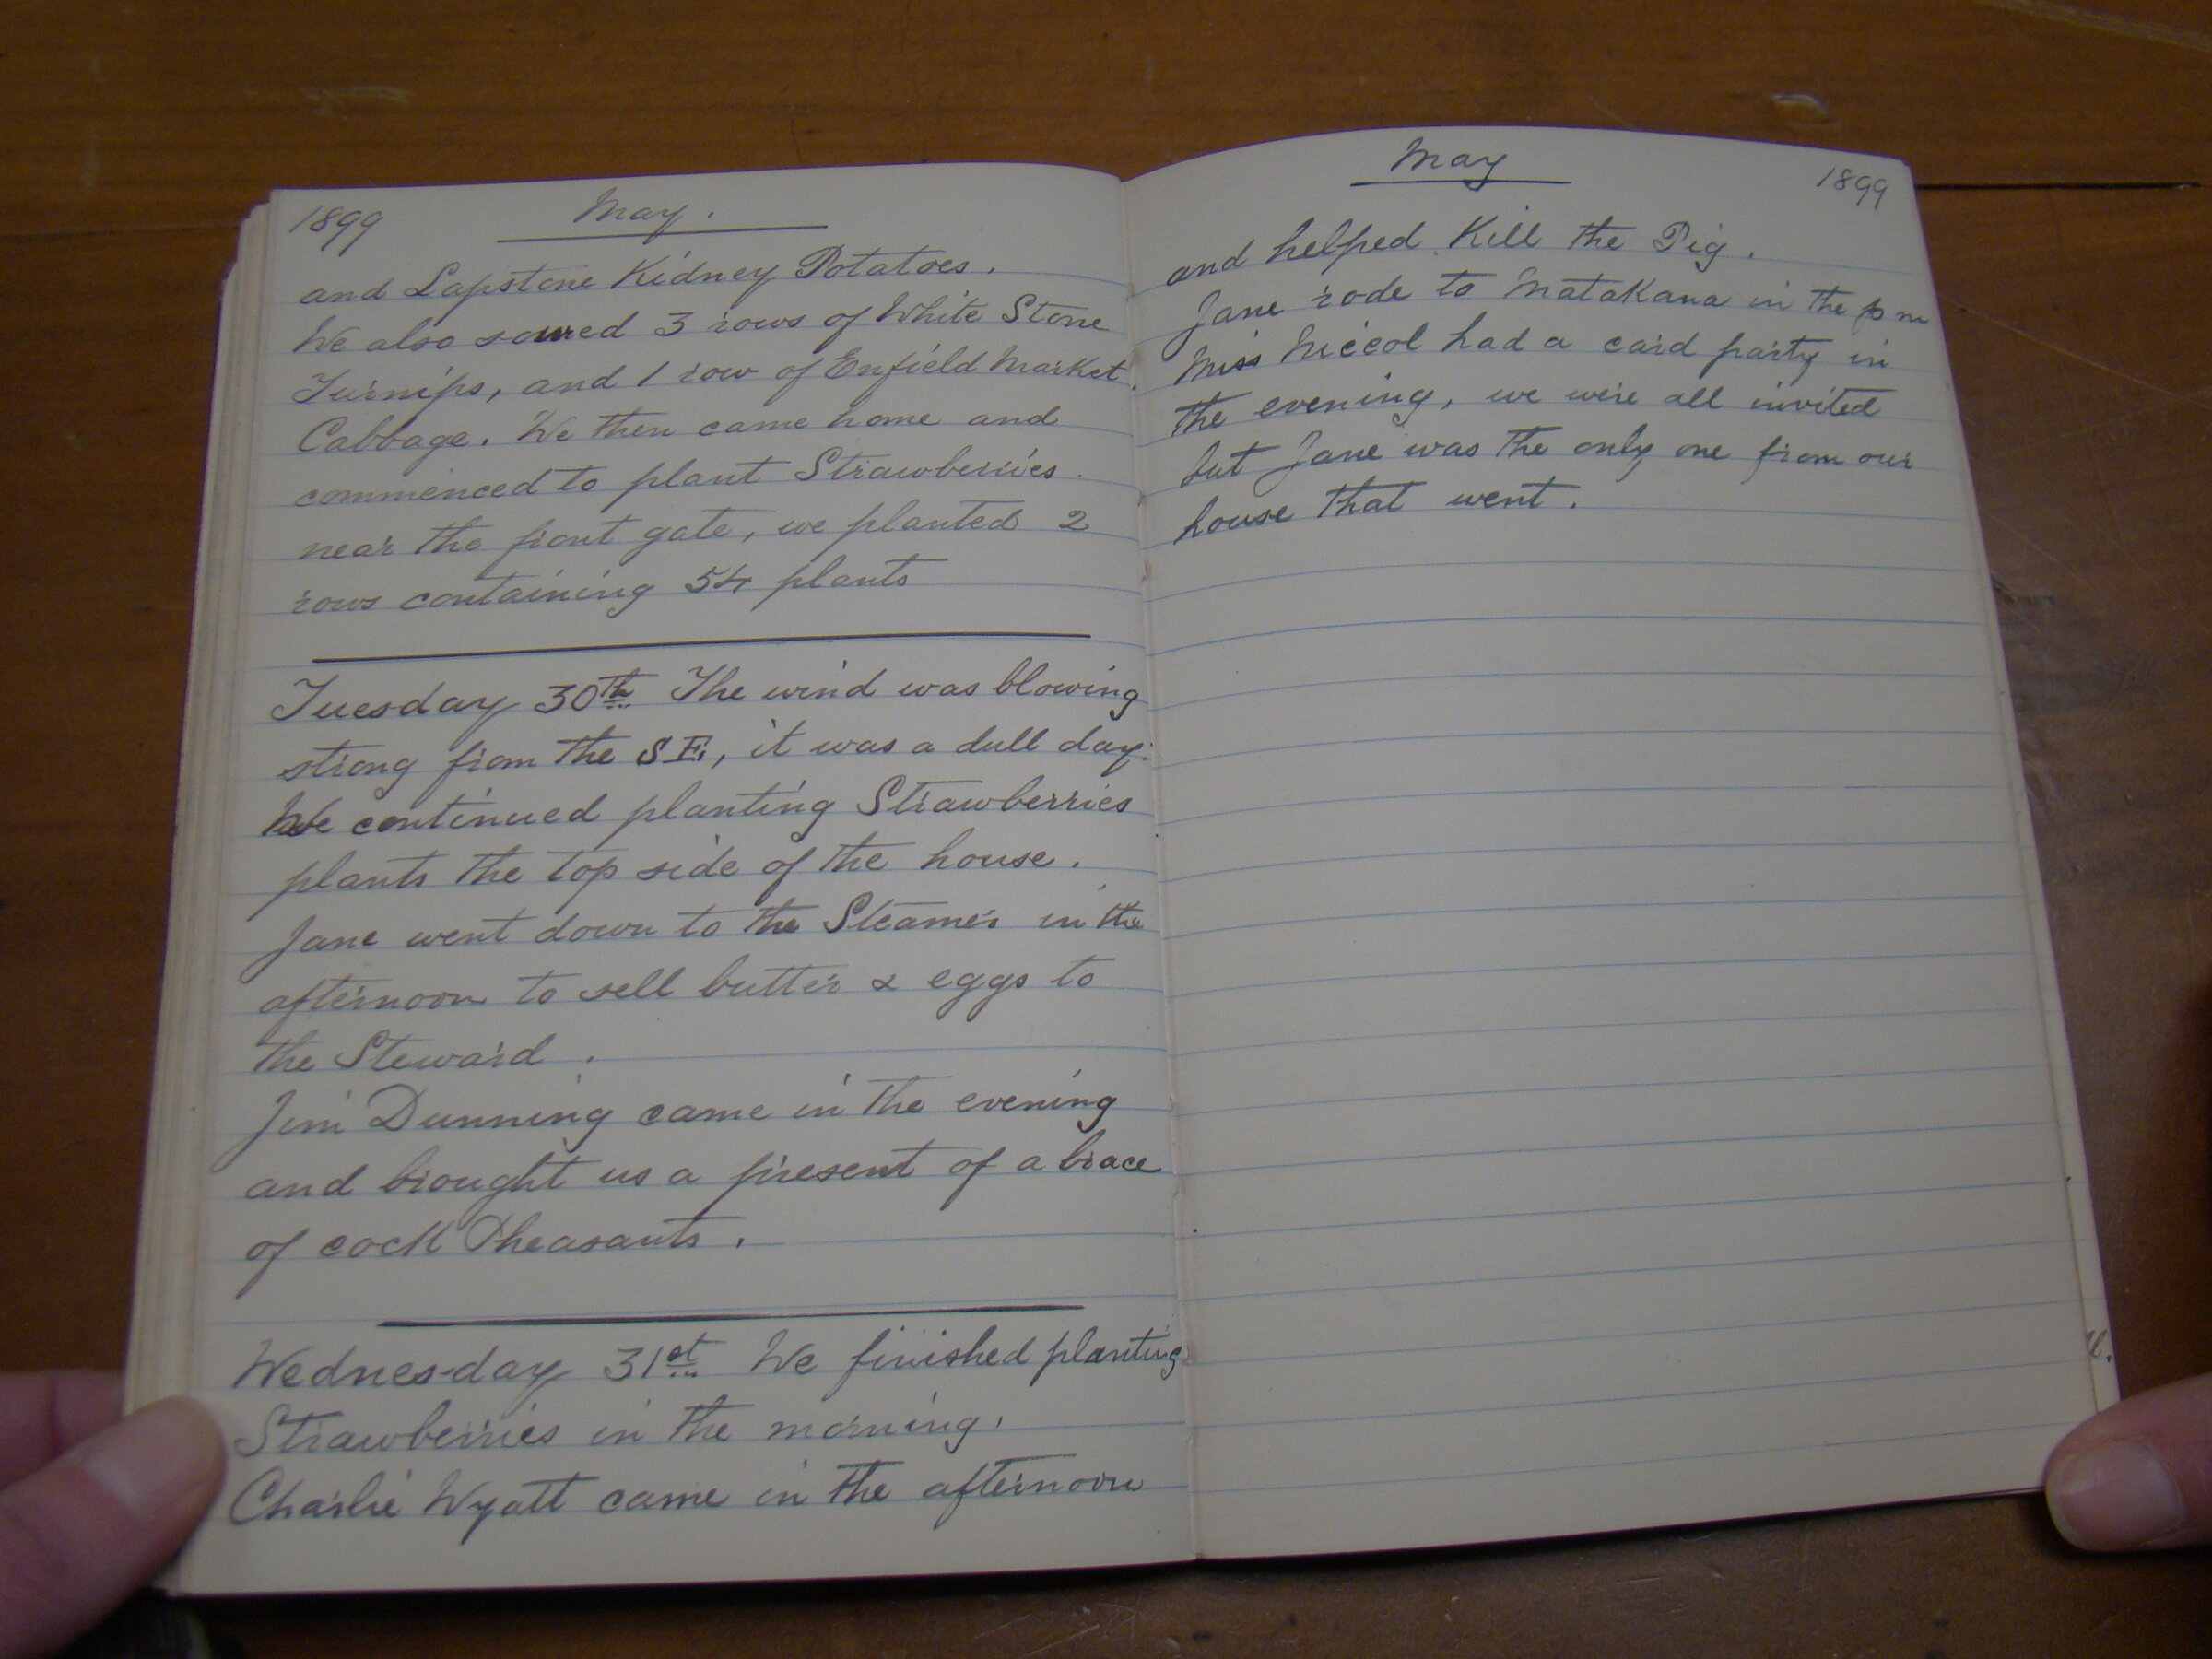 1899 May.
and Lapstone Kidney Potatoes.
We also sowed 3 rows of White Stone
Turnips, and 1 row of Enfield Market
Cabbage. We then came home and
commenced to plant Strawberries
near the front gate, we planted 2
rows containing 54 plants
Tuesday 30th The wind was blowing
strong from the S E, it was a dull day.
We continued planting Strawberries
plants the top side of the house.
Jane went down to the Steamer in the
afternoon to sell butter & eggs to
the Steward.
Jim Dunning came in the evening
and brought us a present of a brace
of cock Pheasants.
Wednesday 31st We finished planting
Strawberries in the morning.
Charlie Wyatt came in the afternoon
May 1899
and helped Kill the Pig.
Jane rode to Matakana in the pm
Miss Niccol had a card party in
the evening, we were all invited
but Jane was the only one from our
house that went.